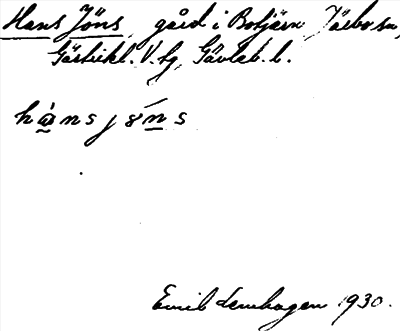 Hans Jöns, gård i Botjärn Järbo sn,
Gästrikl. V. tg, Gävleb. l.
hànsjö́ns
Emil Lenhagen 1930.